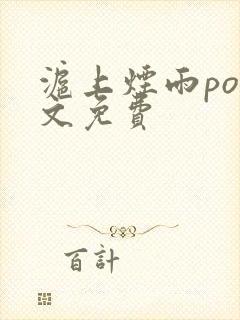 滬上煙雨po
文免費
百計